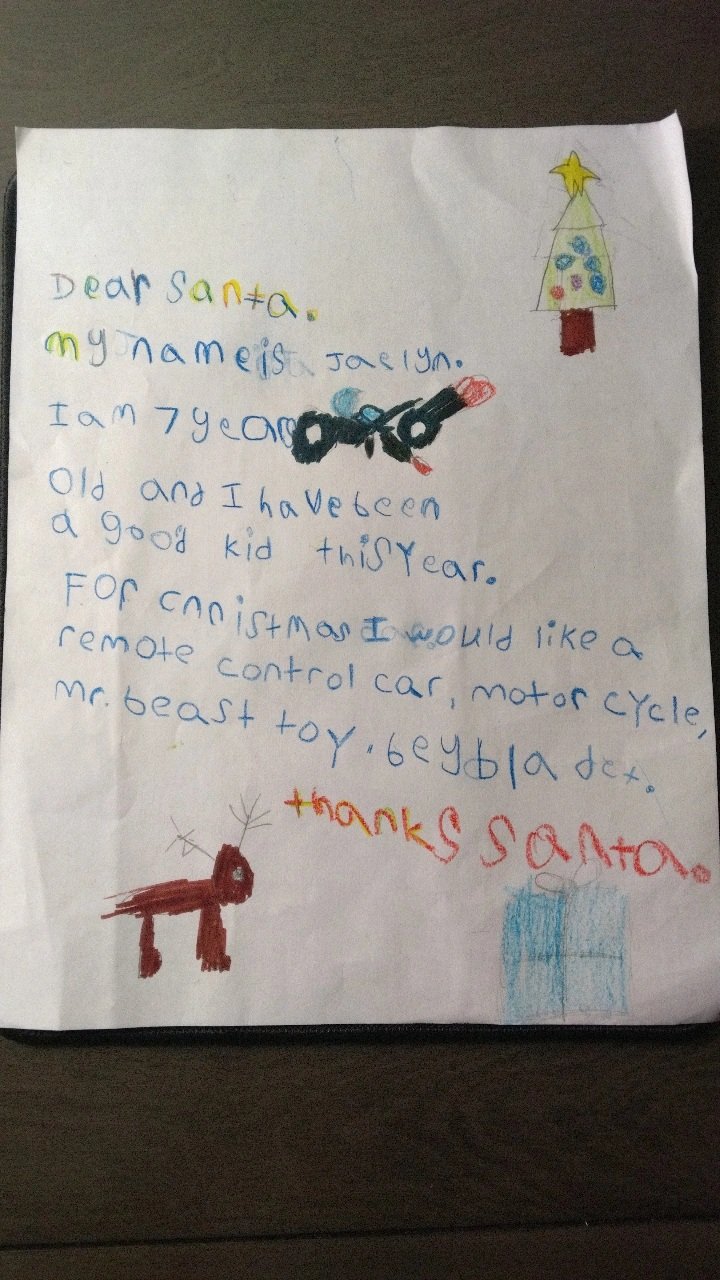 Dear Santa.
my name is Jaelyn.
I am 7 year
Old and I have been
a good kid this Year.
For cnristmas I would like a
remote control car, motor cycle,
Mr. beast toy. beyblade x.
thanks Santa.